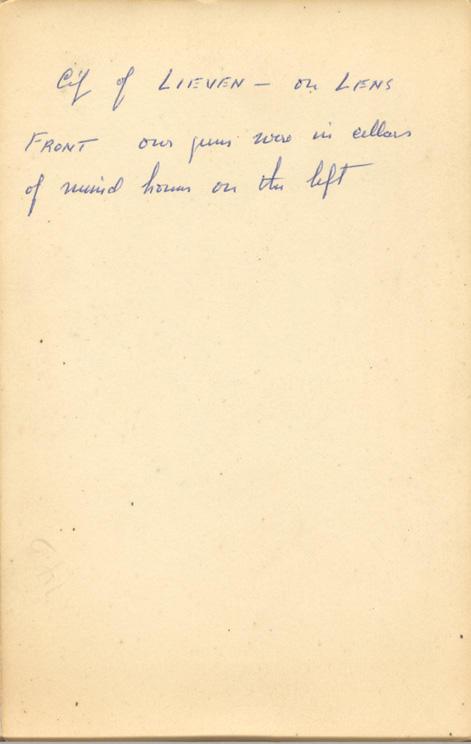 City of LIEVEN — on LENS
FRONT our guns were in cellars
of ruined houses on the left